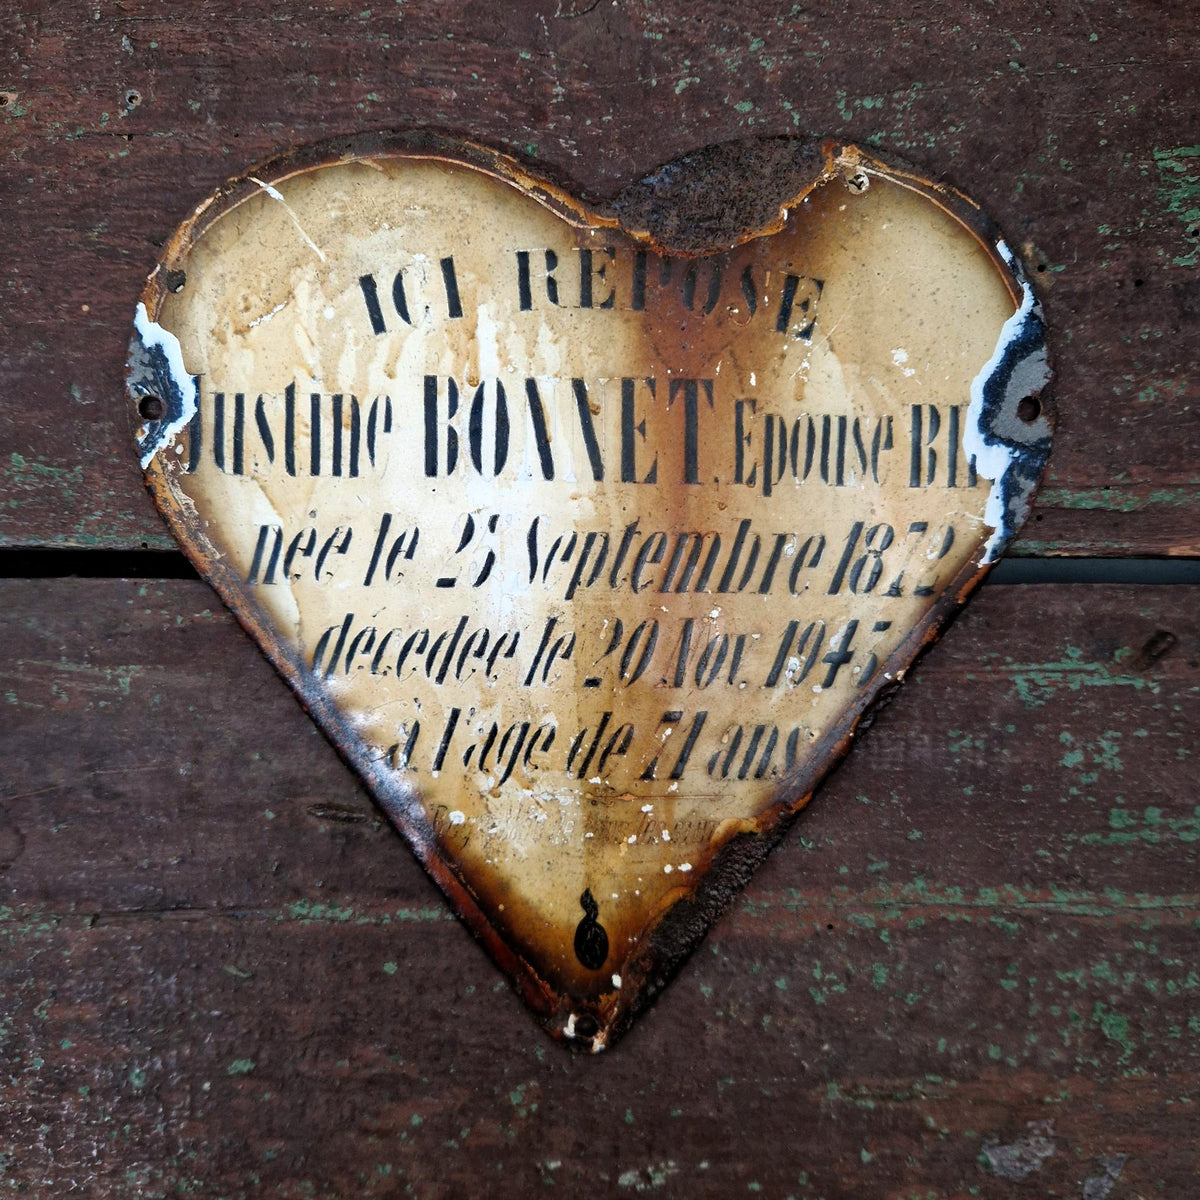 ICI REPOSE
Justine BONNET, Epouse
née le 23 Septembre 1872
décedée le 20 Nov. 1943
à l'age de 71 ans